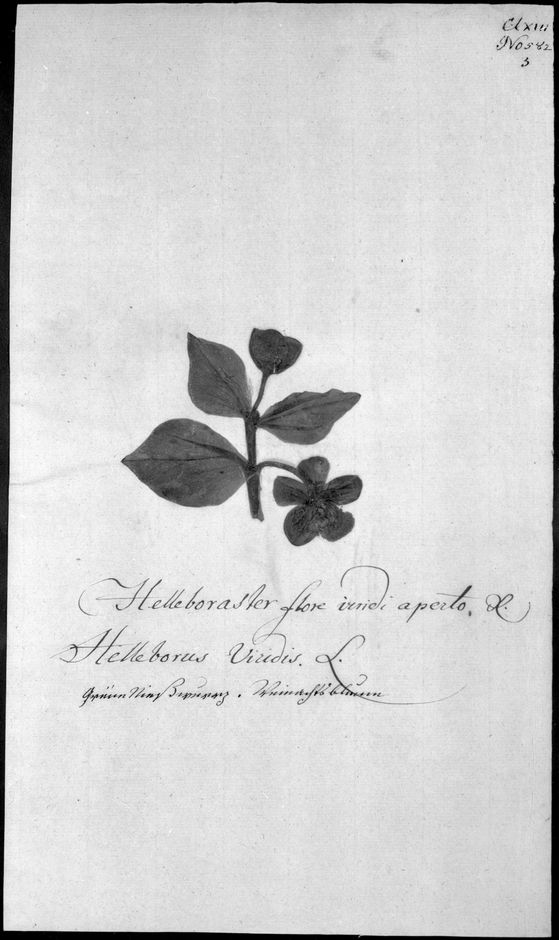 Clxiii
No 582
3
Helleboraster flore viridi aperto. &.
Helleborus Viridis. L.
Grüne Nießwurz. Weinachtsblume